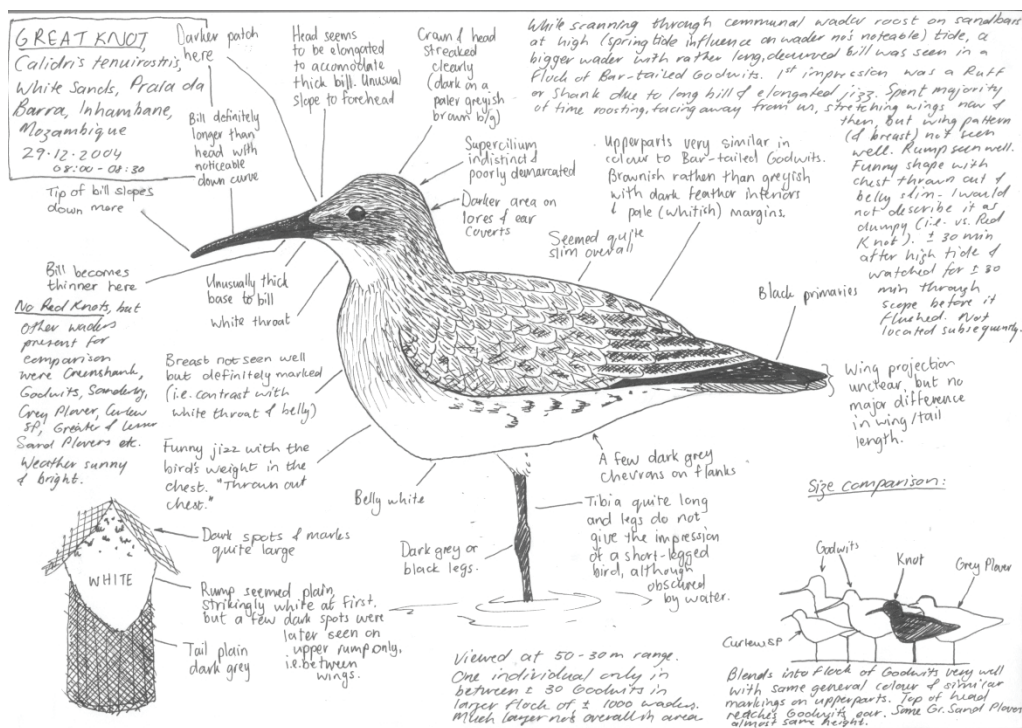 GREAT KNOT,
Calidris tenuirostris,
White Sands, Praia da
Barra, Inhambane,
Mozambique
29.12.2004
08:00 - 08:30
Darker patch
here
Head seems
to be elongated
to accomodate
thick bill. Unusual
slope to forehead
Crown & head
streaked
clearly
(dark on a
paler greyish
brown b/g)
While scanning through communal wader roost on sandbars
at high (spring tide influence on wader no's noteable) tide, a
bigger wader with rather long, decurved bill was seen in a
flock of Bar-tailed Godwits. 1st impression was a Ruff
or Shank due to long bill & elongated jizz. Spent majority
of time roosting, facing away from us, stretching wings now &
then, but wing pattern
(& breast) not seen
well. Rump seen well.
Funny shape with
chest thrown out &
belly slim - I would
not describe it as
dumpy (i.e. vs. Red
Knot). ± 30 min
after high tide &
watched for ± 30
min through
scope before it
flushed. Not
located subsequently.
Bill definitely
longer than
head with
noticeable
down curve
Tip of bill slopes
down more
Supercilium
indistinct &
poorly demarcated
Darker area on
lores & ear
coverts
Upperparts very similar in
colour to Bar-tailed Godwits.
Brownish rather than greyish
with dark feather interiors
& pale (whitish) margins.
Seemed quite
slim overall
Black primaries
Bill becomes
thinner here
Unusually thick
base to bill
White throat
No Red Knots, but
other waders
present for
comparison
were Greenshank,
Godwits, Sanderling,
Grey Plover, Curlew
SP, Greater & Lesser
Sand Plovers etc.
Weather sunny
& bright.
Breast not seen well
but definitely marked
(i.e. contrast with
white throat & belly)
Funny jizz with the
bird's weight in the
chest. "Thrown out
chest."
Belly white
Wing projection
unclear, but no
major difference
in wing/tail
length.
A few dark grey
chevrons on flanks
Tibia quite long
and legs do not
give the impression
of a short-legged
bird, although
obscured
by water.
Dark grey or
black legs.
Dark spots & marks
quite large
WHITE
Rump seemed plain
strikingly white at first,
but a few dark spots were
later seen on
upper rump only,
i.e. between
wings.
Tail plain
dark grey
Viewed at 50-30m range.
One individual only in
between ± 30 Godwits in
larger flock of ± 1000 waders.
Much larger no's overall in area
Size comparison:
Godwits
Knot
Grey Plover
Curlew SP
Blends into flock of Godwits very well
with same general colour & similar
markings on upperparts. Top of head
reaches Godwits ear. Some Gr. Sand Plover
almost same height.